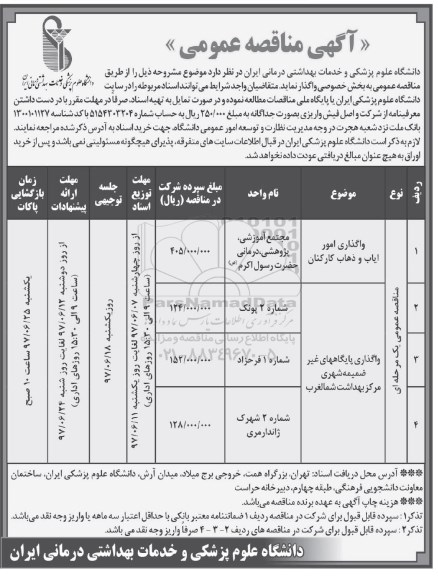 « آگهی مناقصه عمومی »
دانشگاه علوم پزشکی و خدمات بهداشتی درمانی ایران
دانشگاه علوم پزشکی و خدمات بهداشتی درمانی ایران در نظر دارد موضوع مشروحه ذیل را از طریق
مناقصه عمومی به بخش خصوصی واگذار نماید. متقاضیان واجد شرایط می توانند اسناد مربوطه را در سایت
دانشگاه علوم پزشکی ایران یا پایگاه ملی مناقصات مطالعه نموده و در صورت تمایل به تهیه اسناد، صرفا در مهلت مقرر با در دست داشتن
معرفینامه از شرکت و اصل فیش واریزی بصورت جداگانه به مبلغ ۲۵۰/۰۰۰ ریال به حساب شماره ۵۱۵۴۳۰۳۲۰۴ با کد شناسه ۱۳۰۰۱۰۱۱۲۷
بانک ملت نزد شعبه هجرت در وجه مدیریت نظارت و توسعه امور عمومی دانشگاه، جهت خرید اسناد به آدرس ذکر شده مراجعه نمایند.
لازم به ذکر است دانشگاه علوم پزشکی ایران در قبال اطلاعات سایت های متفرقه، پذیرای هیچگونه مسئولیتی نمی باشد و پس از خرید
اوراق به هیچ عنوان مبالغ دریافتی عودت داده نخواهد شد.
ردیف
نوع
موضوع
نام واحد
مبلغ سپرده شرکت در مناقصه (ریال)
مهلت توزیع اسناد
جلسه توجیهی
مهلت ارائه پیشنهادات
زمان بازگشایی پاکات
مناقصه عمومی یک مرحله ای
۱
واگذاری امور ایاب و ذهاب کارکنان
مجتمع آموزشی، پژوهشی، درمانی حضرت رسول اکرم
۴۰۵/۰۰۰/۰۰۰
۲
واگذاری پایگاههای غیر ضمیمه شهری مرکز بهداشت شمالغرب
شماره ۲ پونک
۱۲۴/۰۰۰/۰۰۰
۳
شماره ۱ فرحزاد
۱۵۲/۰۰۰/۰۰۰
۴
شماره ۲ شهرک ژاندارمری
۱۲۸/۰۰۰/۰۰۰
از روز چهارشنبه ۹۷/۰۶/۰۷ لغایت روز یکشنبه ۹۷/۰۶/۱۱
(ساعت ۹ الی ۱۵:۳۰ روزهای اداری)
روز یکشنبه ۹۷/۰۶/۱۸
از روز دوشنبه ۹۷/۰۶/۱۲ لغایت روز شنبه ۹۷/۰۶/۲۴
(ساعت ۹ الی ۱۵:۳۰ روزهای اداری)
یکشنبه ۹۷/۰۶/۲۵ ساعت ۱۰ صبح
ParsNamadData
پایگاه اطلاع رسانی مناقصه و مزایده
۰۲۱-۸۸۳۴۹۶۷۰-۵
*** آدرس محل دریافت اسناد: تهران، بزرگراه همت، خروجی برج میلاد، میدان آرش، دانشگاه علوم پزشکی ایران، ساختمان
معاونت دانشجویی فرهنگی، طبقه چهارم، دبیرخانه حراست
*** هزینه چاپ آگهی به عهده برنده مناقصه می باشد.
تذکر۱: سپرده قابل قبول برای شرکت در مناقصه ردیف ۱ ضمانتنامه معتبر بانکی با حداقل اعتبار سه ماهه یا واریز وجه نقد می باشد.
تذکر۲: سپرده قابل قبول برای شرکت در مناقصه های ردیف ۲ - ۳ - ۴ صرفا واریز وجه نقد می باشد.
دانشگاه علوم پزشکی و خدمات بهداشتی درمانی ایران